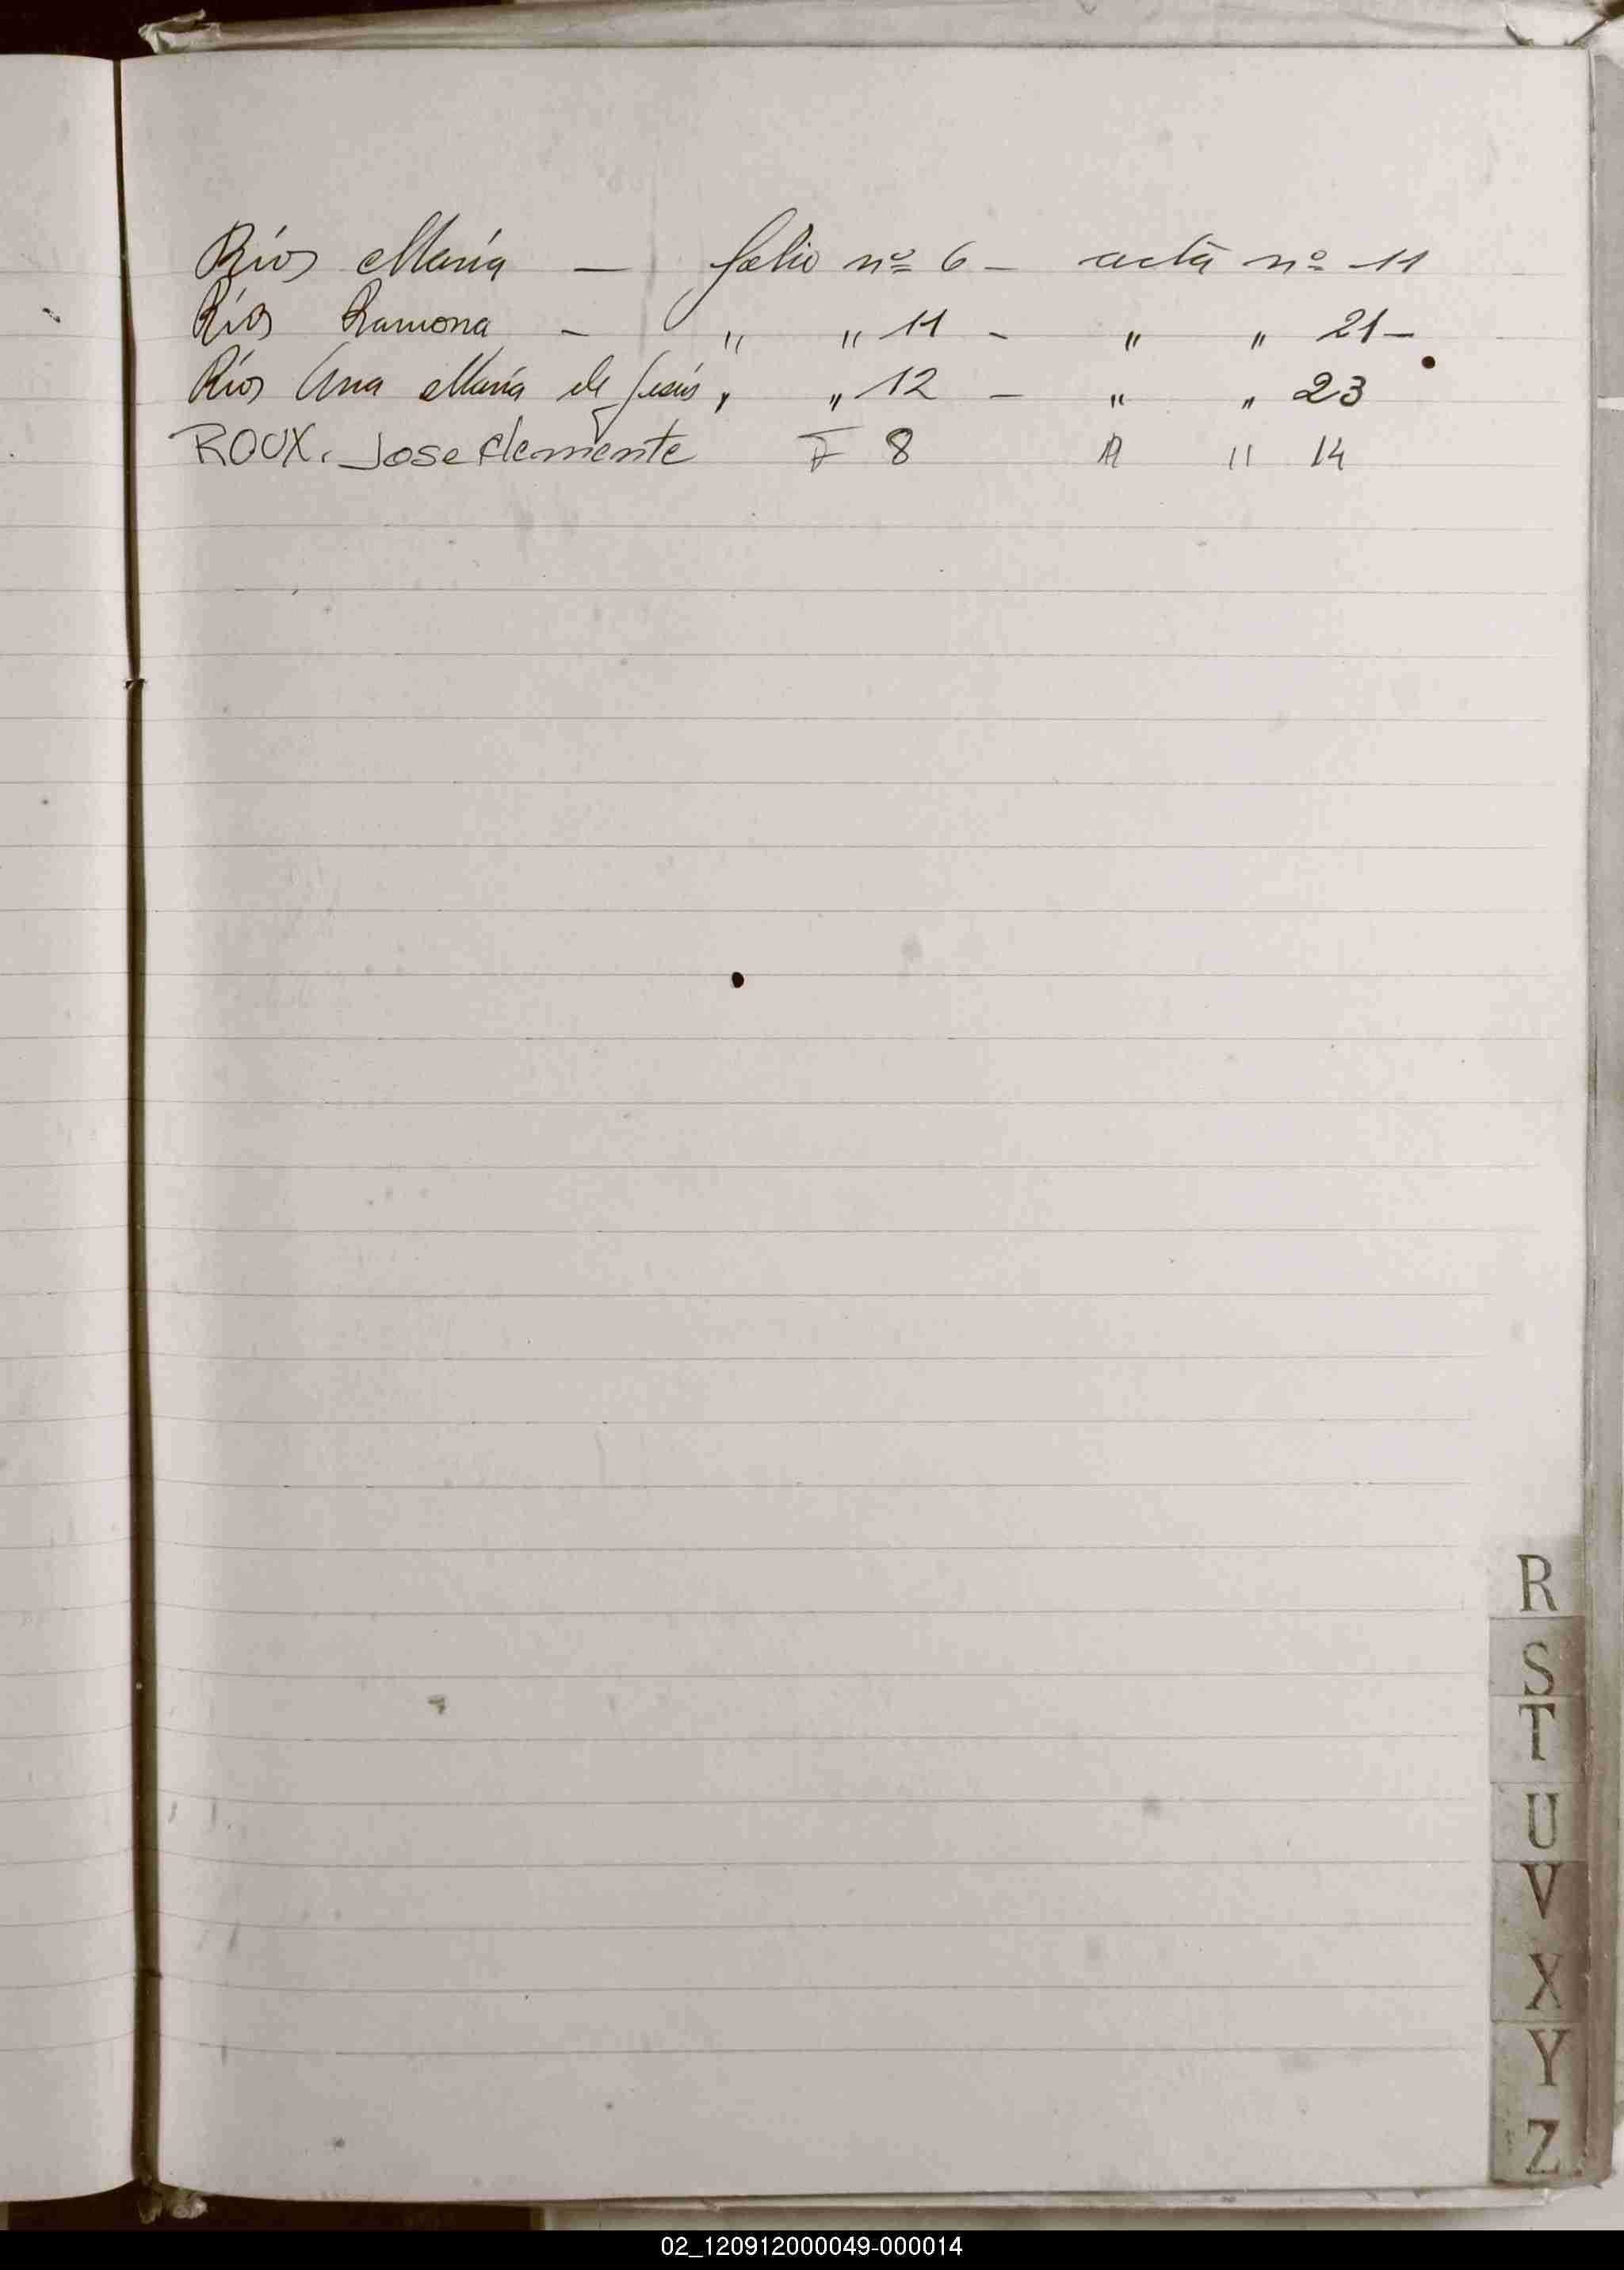 Ríos María — folio nº 6 — acta nº 11
Ríos Ramona — " " 11 — " " 21 —
Ríos Ana María de Jesús " " 12 — " " 23
ROUX. Jose Clemente F 8 A " 14
R
S
T
U
V
X
Y
Z
02_120912000049-000014